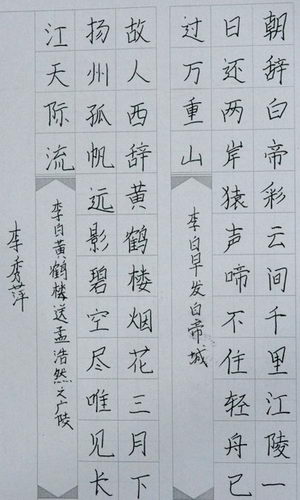 朝辞白帝彩云间千里江陵一
日还两岸猿声啼不住轻舟已
过万重山
李白早发白帝城
故人西辞黄鹤楼烟花三月下
扬州孤帆远影碧空尽唯见长
江天际流
李白黄鹤楼送孟浩然之广陵
李秀萍